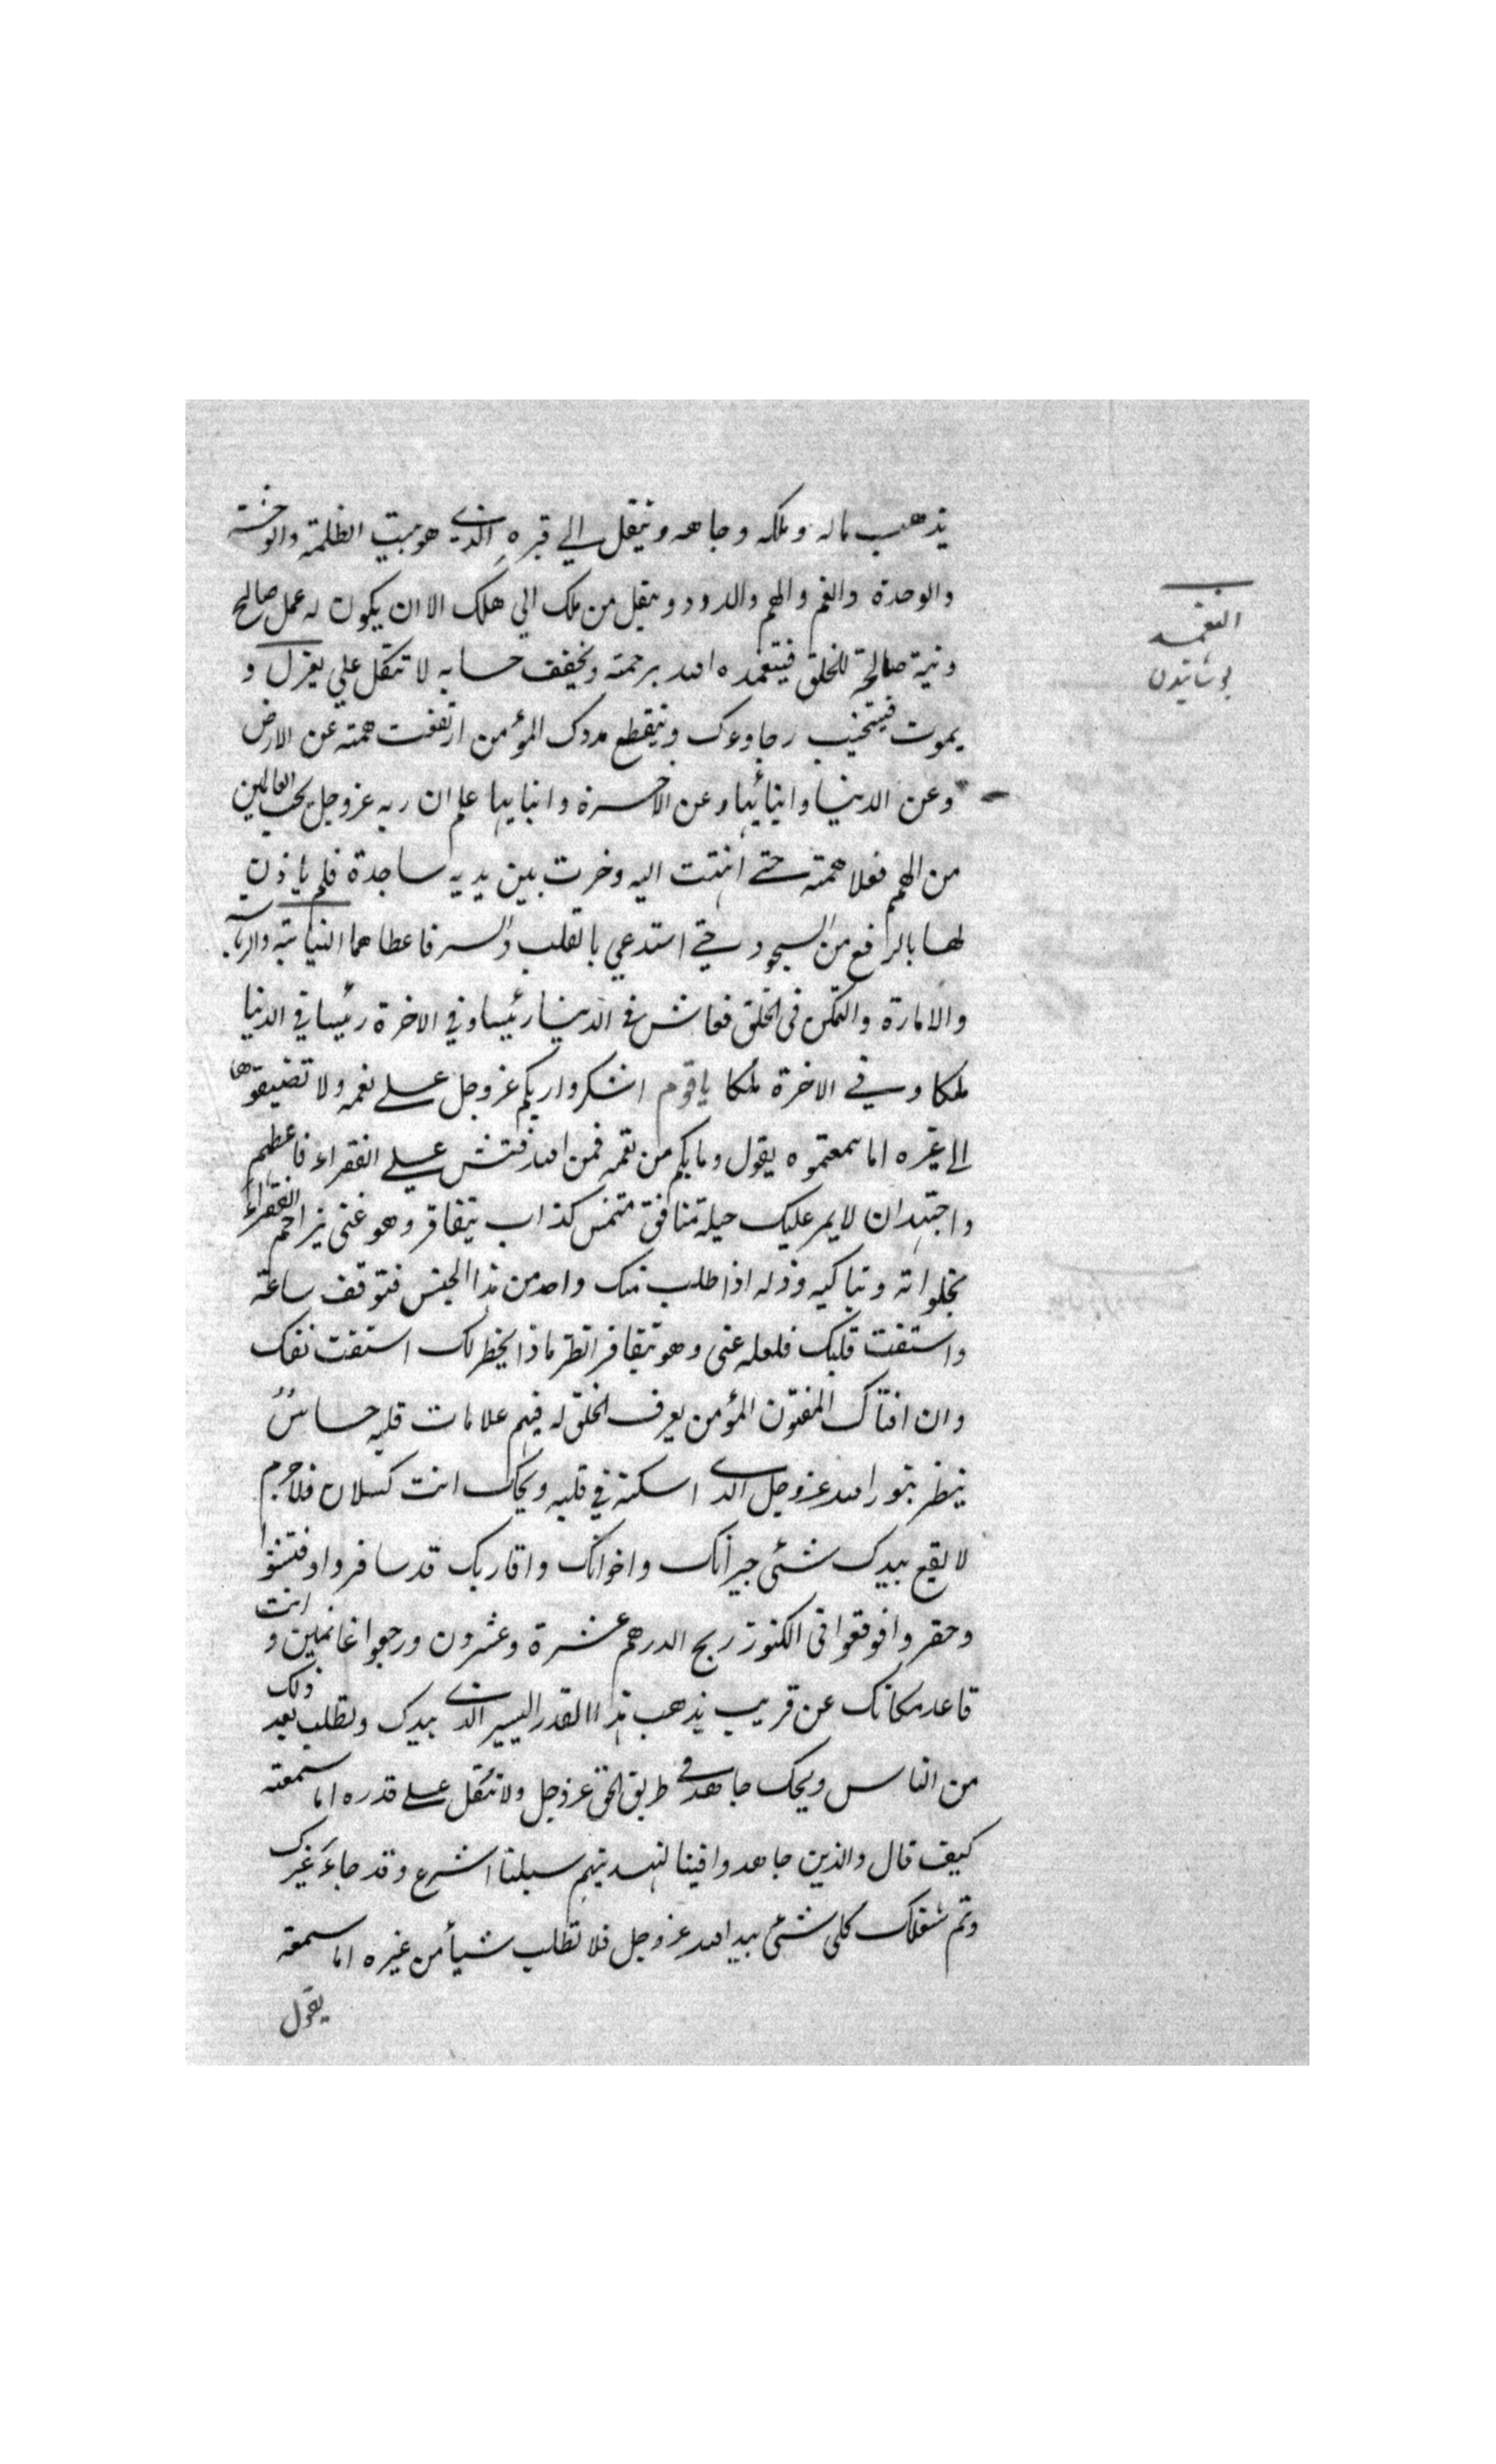 يذهب ماله وملكه وجاهه وينقل الي قبره الذي هو بيت الظلمة والوحشة
والوحدة والغم والهم والدود وينقل من ملك الي هلك الا ان يكون له عمل صالح
ونية صالحة للخلق فيتغمده الله برحمته ويخفف حسابه لا تتكل علي يعزل و
يموت فيستخيب رجاوءك وينقطع مددك المؤمن ارتفعت همته عن الارض
وعن الدنيا وابنائها وعن الاخرة وابنايها علم ان ربه عز وجل يحب العالين
من الهمم فعلا همته حتي انتهت اليه وخرت بين يديه ساجدة فلم ياذن
لها بالرافع من السجود حتي استدعي بالقلب والسر فاعطاهما النيابة والرياسة
والامارة والتمكن في الخلق فعاش في الدنيا رئيسا وفي الاخرة رئيسا في الدنيا
ملكا وفي الاخرة ملكا ياقوم اشكروا ربكم عز وجل علي نعمه ولا تضيفوها
الي غيره اما سمعتموه يقول وما بكم من نعمه فمن الله فتش علي الفقراء فاعطهم
واجتهد ان لا يمر عليك حيلة منافق متنمس كذاب يتفاقر وهو غني يزاحم الفقراء
بخلواته وتباكيه وذله اذا طلب منك واحد من هذا الجنس فتوقف ساعة
واستفت قلبك فلعله غني وهو يتفاقر انظر ماذا يخطر لك استفت نفسك
وان افتاك المفتون المؤمن يعرف الخلق له فيهم علامات قلبه حساس
ينظر بنور الله عز وجل الذي اسكنه في قلبه ويحك انت كسلان فلا جرم
لا يقع بيدك شئي جيرانك واخوانك واقاربك قد سافروا وفتشوا
وحفروا فوقعوا في الكنوز ربح الدرهم عشرة وعشرون ورجعوا غانمين وانت
قاعد مكانك عن قريب يذهب هذا القدر اليسير الذي بيدك وتطلب بعد ذلك
من الناس ويحك جاهد في طريق الحق عز وجل ولا تتكل علي قدره اما سمعته
كيف قال والذين جاهدوا فينا لنهدينهم سبلنا اشرع وقد جاءك غيرك
وتم شغلك كل شئي بيد الله عز وجل فلا تطلب شيأ من غيره اما سمعته
يقول
التغمد